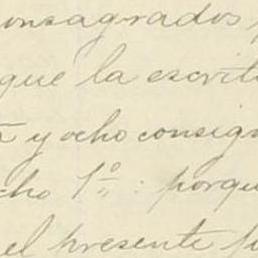 onsagrados
que la escrit
a y ocho consign
cho 1º : porqu
el presente p